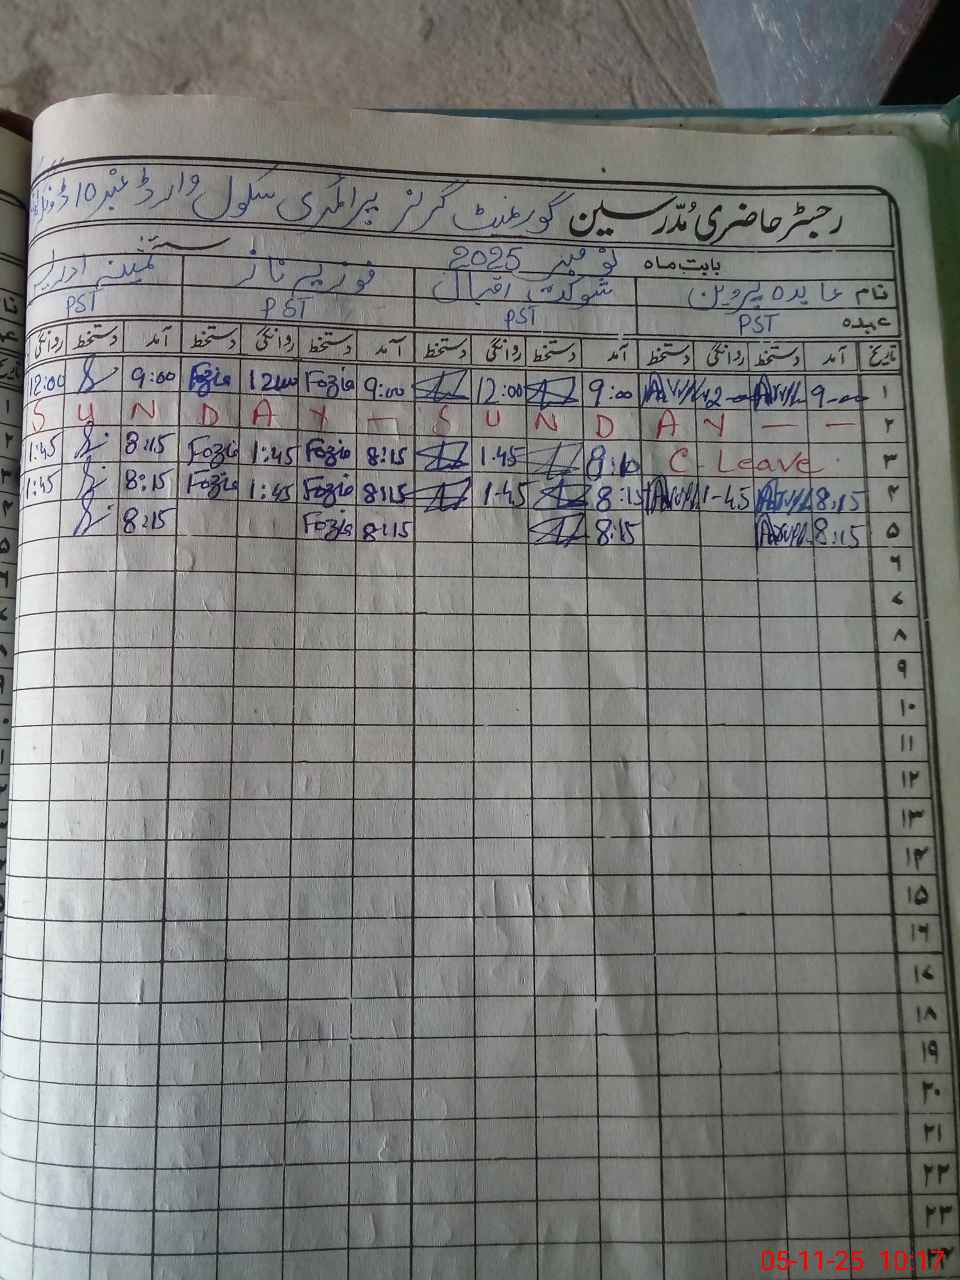 رجسٹر حاضری مُدّرسین گورنمنٹ گرلز پرائمری سکول وارڈ نمبر 10
بابت ماہ نومبر 2025
نام عابدہ پروین شوکت اقبال فوزیہ ناز ثمینہ ادریس
عہدہ PST PST PST PST
تاریخ آمد دستخط روانگی دستخط آمد دستخط روانگی دستخط آمد دستخط روانگی دستخط آمد دستخط روانگی
۱ 9-00 9:00 12:00 9:00 Fozia 1200 Fozia 9:00 12:00
۲ S U N D A Y - S U N D A Y - -
۳ C Leave 8:10 1.45 8:15 Fozia 1:45 Fozia 8:15 1:45
۴ 8:15 1-45 8:15 1-45 8:15 Fozia 1:45 Fozia 8:15 1:45
۵ 8:15 8:15 8:15 Fozia 8:15
۶
۷
۸
۹
۱۰
۱۱
۱۲
۱۳
۱۴
۱۵
۱۶
۱۷
۱۸
۱۹
۲۰
۲۱
۲۲
۲۳
05-11-25 10:17